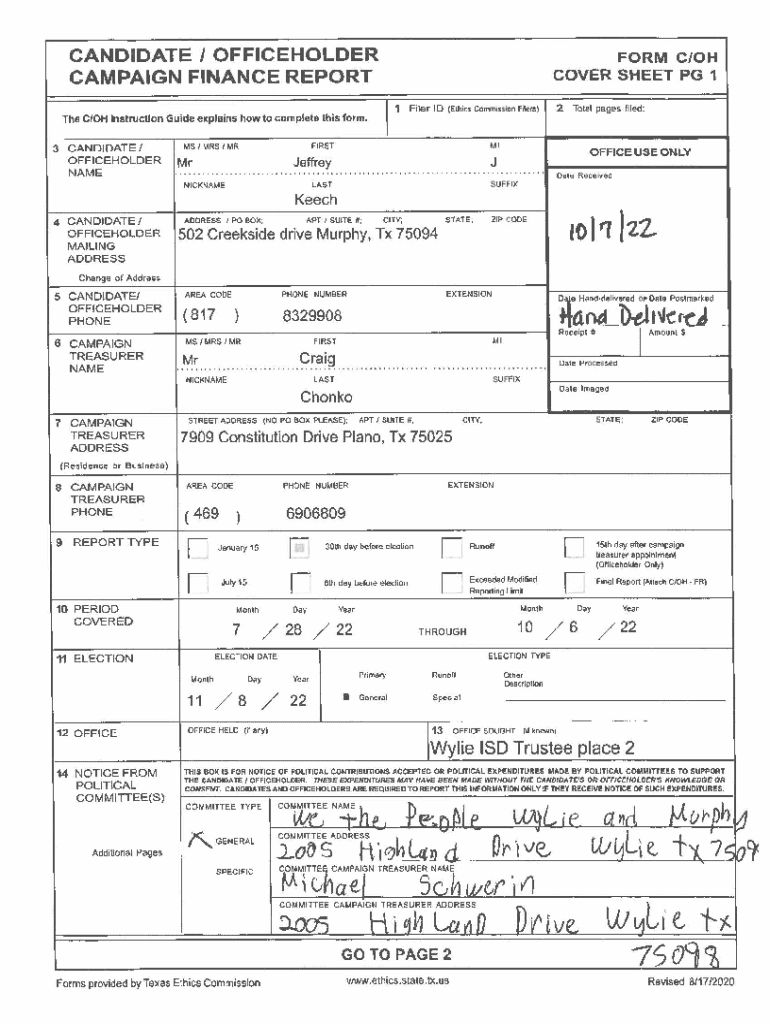 CANDIDATE / OFFICEHOLDER
CAMPAIGN FINANCE REPORT
FORM C/OH
COVER SHEET PG 1
The C/OH Instruction Guide explains how to complete this form.
1 Filer ID (Ethics Commission Filers)
2 Total pages filed:
3 CANDIDATE / OFFICEHOLDER NAME
MS / MRS / MR FIRST MI
Mr Jeffrey J
NICKNAME LAST SUFFIX
Keech
OFFICE USE ONLY
Date Received
10/7/22
4 CANDIDATE / OFFICEHOLDER MAILING ADDRESS
ADDRESS / PO BOX; APT / SUITE #; CITY; STATE; ZIP CODE
502 Creekside drive Murphy, Tx 75094
Change of Address
5 CANDIDATE/ OFFICEHOLDER PHONE
AREA CODE PHONE NUMBER EXTENSION
(817) 8329908
Date Hand-delivered or Date Postmarked
Hand Delivered
Receipt # Amount $
Date Processed
Date Imaged
6 CAMPAIGN TREASURER NAME
MS / MRS / MR FIRST MI
Mr Craig
NICKNAME LAST SUFFIX
Chonko
7 CAMPAIGN TREASURER ADDRESS
(Residence or Business)
STREET ADDRESS (NO PO BOX PLEASE); APT / SUITE #; CITY; STATE; ZIP CODE
7909 Constitution Drive Plano, Tx 75025
8 CAMPAIGN TREASURER PHONE
AREA CODE PHONE NUMBER EXTENSION
(469) 6906809
9 REPORT TYPE
January 15 30th day before election Runoff 15th day after campaign treasurer appointment (Officeholder Only)
July 15 8th day before election Exceeded Modified Reporting Limit Final Report (Attach C/OH - FR)
10 PERIOD COVERED
Month Day Year Month Day Year
7 / 28 / 22 THROUGH 10 / 6 / 22
11 ELECTION
ELECTION DATE ELECTION TYPE
Month Day Year Primary Runoff Other Description
11 / 8 / 22 General Special
12 OFFICE
OFFICE HELD (if any)
13 OFFICE SOUGHT (if known)
Wylie ISD Trustee place 2
14 NOTICE FROM POLITICAL COMMITTEE(S)
THIS BOX IS FOR NOTICE OF POLITICAL CONTRIBUTIONS ACCEPTED OR POLITICAL EXPENDITURES MADE BY POLITICAL COMMITTEES TO SUPPORT
THE CANDIDATE / OFFICEHOLDER. THESE EXPENDITURES MAY HAVE BEEN MADE WITHOUT THE CANDIDATE'S OR OFFICEHOLDER'S KNOWLEDGE OR
CONSENT. CANDIDATES AND OFFICEHOLDERS ARE REQUIRED TO REPORT THIS INFORMATION ONLY IF THEY RECEIVE NOTICE OF SUCH EXPENDITURES.
COMMITTEE TYPE
X GENERAL
SPECIFIC
Additional Pages
COMMITTEE NAME
We the People Wylie and Murphy
COMMITTEE ADDRESS
2005 Highland Drive Wylie tx 7509
COMMITTEE CAMPAIGN TREASURER NAME
Michael Schwerin
COMMITTEE CAMPAIGN TREASURER ADDRESS
2005 HighLand Drive Wylie tx
75098
GO TO PAGE 2
Forms provided by Texas Ethics Commission
www.ethics.state.tx.us
Revised 8/17/2020